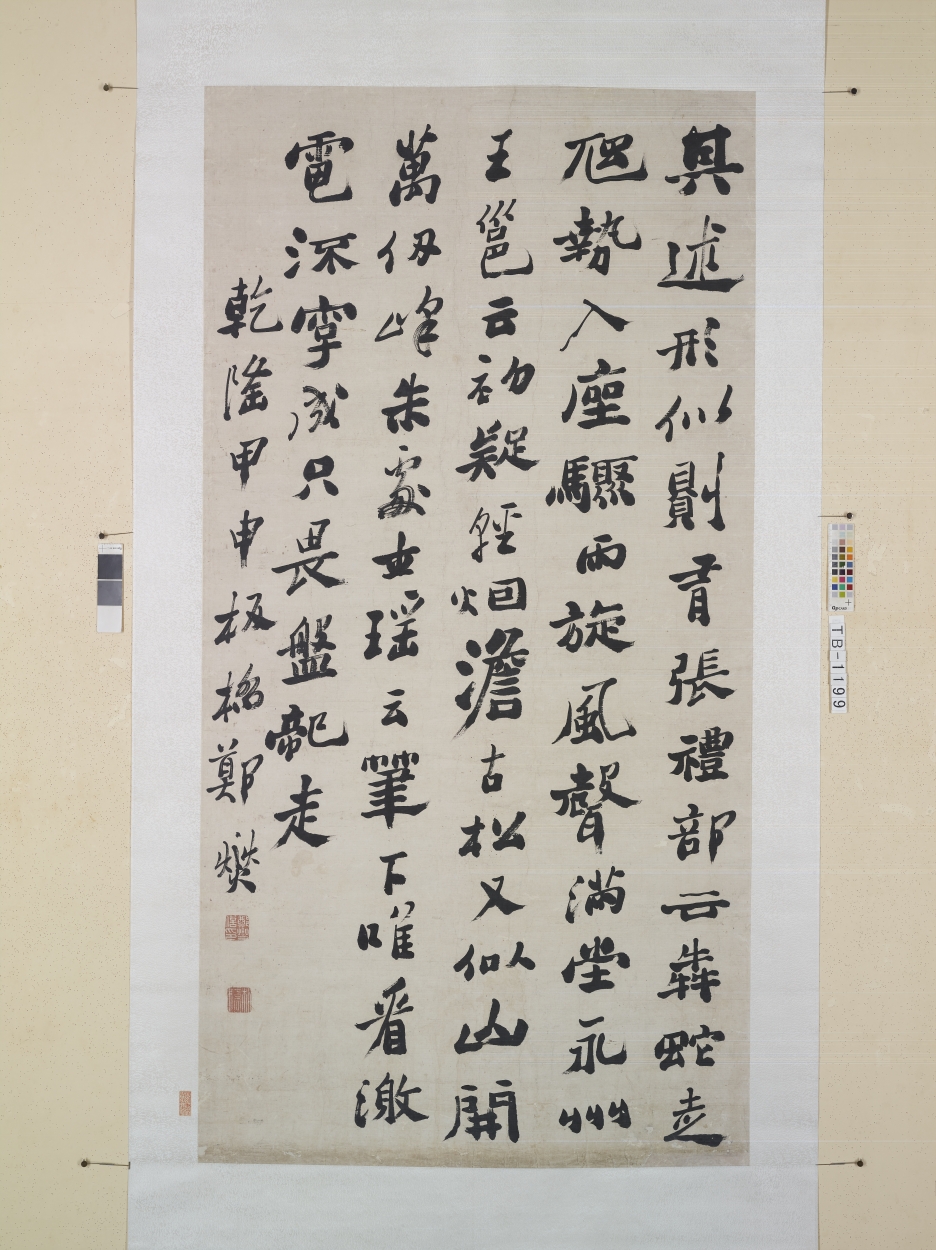 其述形似則有張禮部云犇蛇走
虺勢入座驟雨旋風聲滿堂永州
王邕云初疑輕烟澹古松又似山開
萬仞峰朱處士瑤云筆下唯看激
電流字成只畏盤龍走
乾隆甲申板橋鄭燮
TB-1199